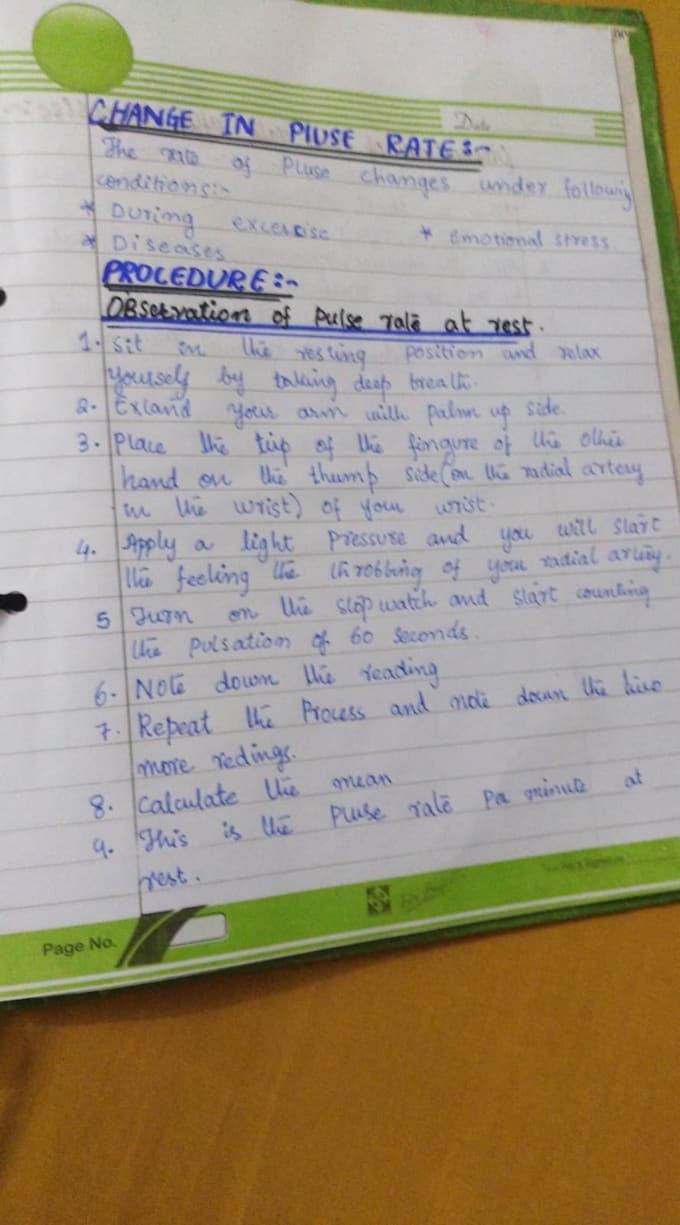 Date
CHANGE IN PlUSE RATE:-
The rate of Pluse changes under following
conditions:-
* During excercise * Emotional stress.
* Diseases
PROCEDURE:-
OBservation of pulse rate at rest.
1. Sit in the resting position and relax
yourself by taking deep breath.
2. Extand your arm with palm up side.
3. Place the tip of the fingure of the other
hand on the thump side (on the radial artery
in the wrist) of your wrist.
4. Apply a light Pressure and you will start
the feeling the throbbing of your radial artery.
5 Turn on the stop watch and start counting
the pulsation of 60 seconds.
6. Note down the reading
7. Repeat the Process and note down the two
more redings.
8. Calculate the mean
9. This is the pluse rate per minute at
rest.
Page No.